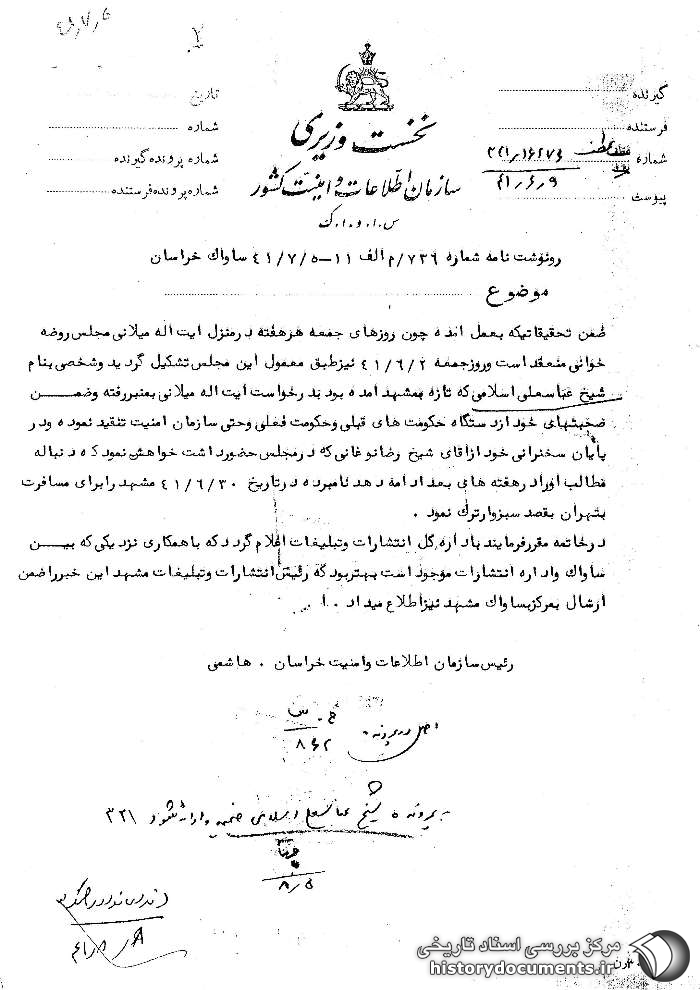 ۴۱٫۷٫۵
۲
گیرنده
فرستنده
شماره ۳۲۱٫۱۶۲۷۶
۴۱٫۶٫۹
پیوست
نخست وزیری
سازمان اطلاعات و امنیت کشور
س . ا . و . ا . ک
تاریخ
شماره
شماره پرونده گیرنده
شماره پرونده فرستنده
رونوشت نامه شماره ۷۳۶/م الف ۱۱-۴۱/۷/۵ ساواک خراسان
موضوع
ضمن تحقیقاتیکه بعمل امده چون روزهای جمعه هرهفته درمنزل ایت اله میلانی مجلس روضه
خوانی منعقد است وروزجمعه ۴۱/۶/۲ نیزطبق معمول این مجلس تشکیل گردید وشخصی بنام
شیخ عباسعلی اسلامی که تازه بمشهد امده بود بدرخواست ایت اله میلانی بمنبررفته وضمن
صحبتهای خود ازدستگاه حکومت های قبلی وحکومت فعلی وحتی سازمان امنیت تنقید نموده ودر
پایان سخنرانی خود ازآقای شیخ رضانوغانی که درمجلس حضورداشت خواهش نمود که دنباله
مطالب اورادرهفته های بعد ادامه دهد نامبرده درتاریخ ۴۱/۶/۳۰ مشهد رابرای مسافرت
بتهران بقصد سبزوارترک نمود .
درخاتمه مقررفرمایند باداره کل انتشارات وتبلیغات اعلام گردد که باهمکاری نزدیکی که بین
ساواک واداره انتشارات موجود است بهتربود که رئیس انتشارات وتبلیغات مشهد این خبرراضمن
ارسال بمرکزبساواک مشهد نیزاطلاع میداد . ا
رئیس سازمان اطلاعات وامنیت خراسان . هاشمی
اصل در پرونده
بپرونده شیخ عباسعلی اسلامی ضمیمه و ارائه شود ۳۲۱
۸٫۵
مرکز بررسی اسناد تاریخی
historydocuments.ir